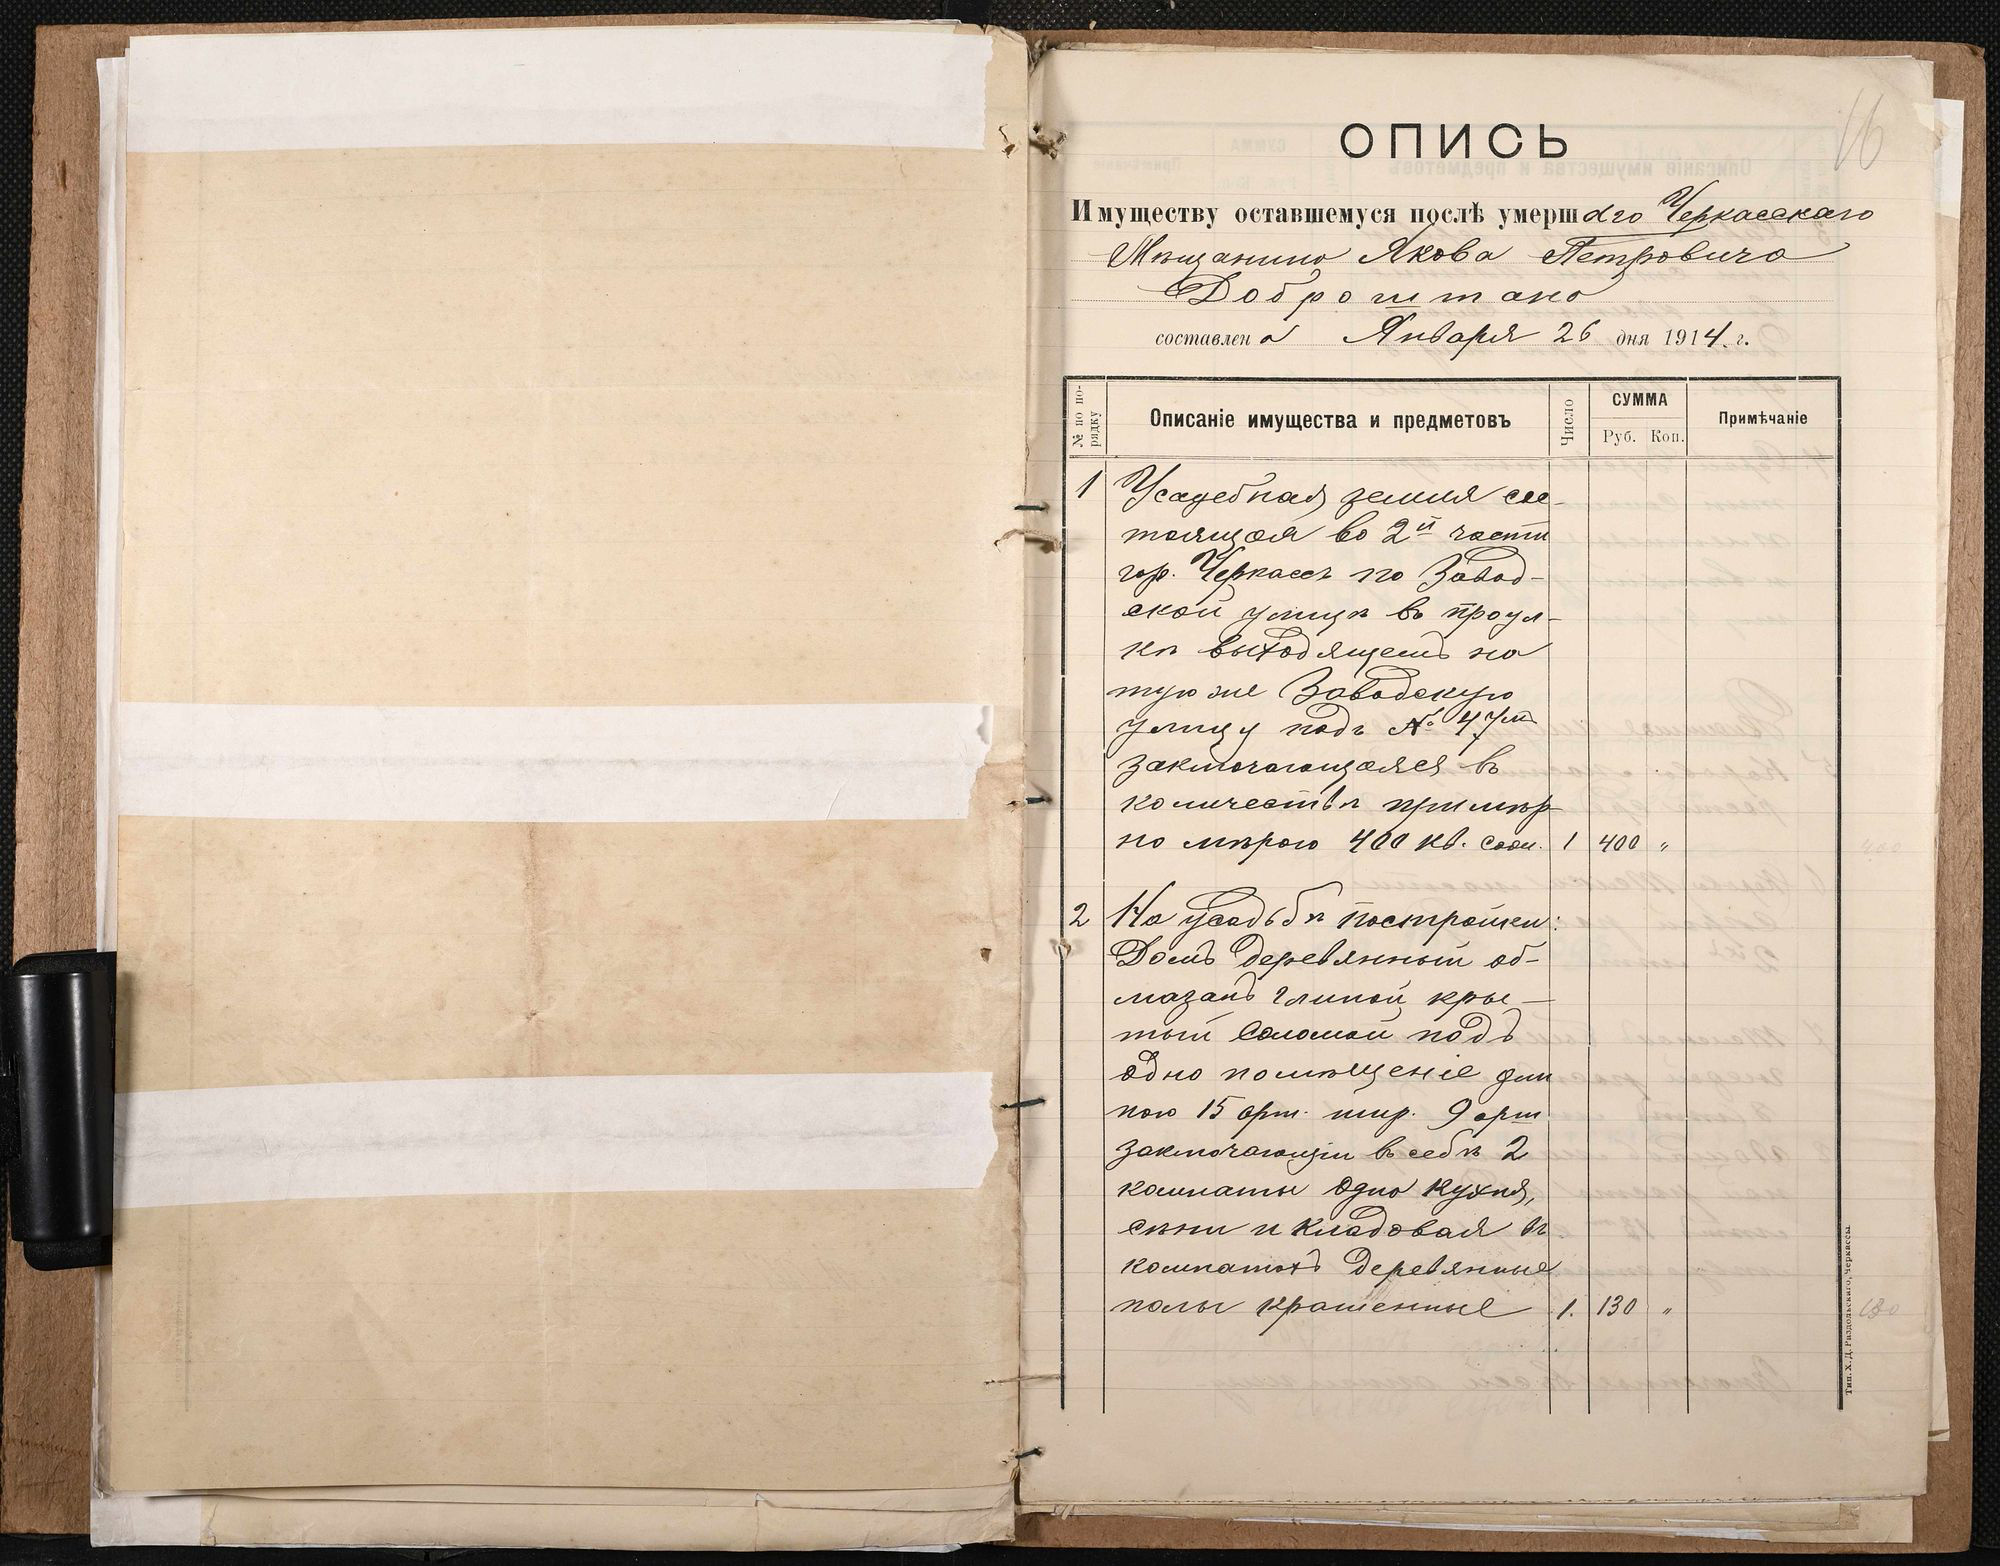 16
ОПИСЬ
Имуществу оставшемуся послѣ умершаго Черкасскаго
Мѣщанина Якова Петровича
Доброштана
составлена Января 26 дня 1914 г.
№ по порядку
Описаніе имущества и предметовъ
Число
СУММА
Руб. Коп.
Примѣчаніе
1 Усадебная земля сос-
тоящая во 2й части
гор. Черкассъ по Завод-
ской улицѣ въ проул-
кѣ выходящемъ на
туюже Заводскую
улицу подъ № 47м
заключающаяся въ
количествѣ примѣр
но мѣрою 400 кв. саж. 1 400 „
400
2 На усадьбѣ постройки:
Домъ деревянный об-
мазанъ глиной, кры-
тый соломой подъ
одно помѣщеніе дли
ною 15 арш. шир. 9 арш
заключающій въ себѣ 2
комнаты одна кухня,
сѣни и кладовая въ
комнатахъ деревянные
полы крашенные 1. 130 „
130
Тип. Х. Д. Раздольскаго, Черкассы.